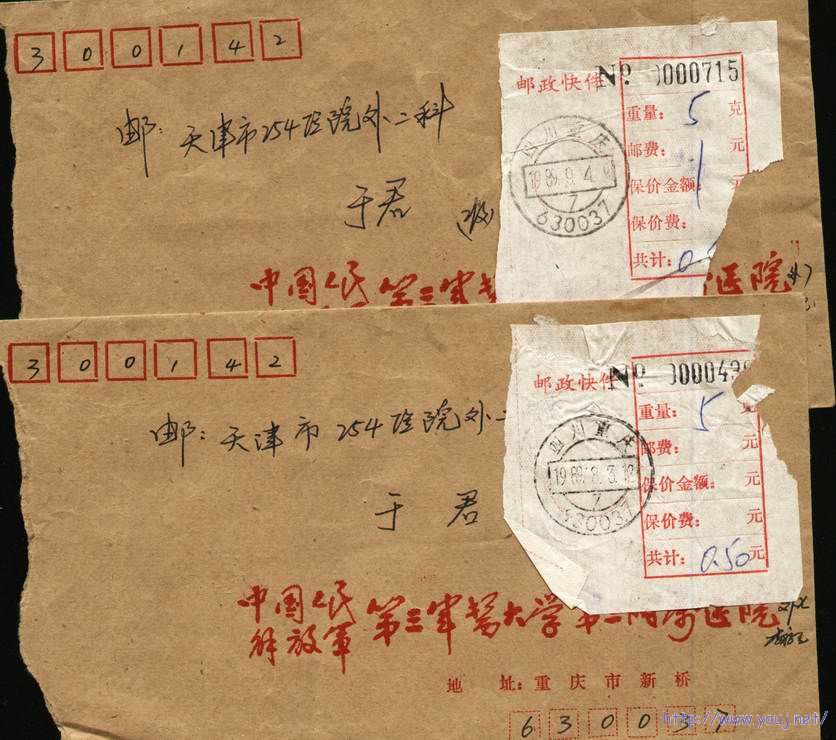 300142
邮政快件
№ 0000715
重量: 5 克
邮费: 1 元
保价金额: 元
保价费:
共计: 0.5
四川重庆
1989.9.4
7
630037
邮: 天津市254医院外二科
于君
中国人民 第三军医 医院
300142
邮政快件
№ 000043
重量: 5 克
邮费: 元
保价金额: 元
保价费: 元
共计: 0.50元
四川重庆
1989.8.3.12
7
630037
邮: 天津市254医院外二
于君
中国人民
解放军 第三军医大学第二附属医院
地 址: 重庆市新桥
630037
http://www.youj.net/